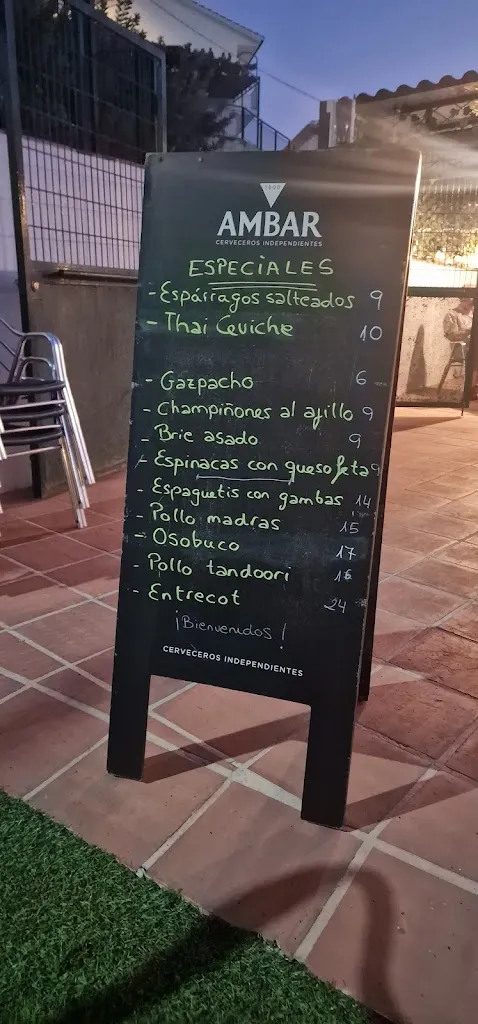 1900
AMBAR
CERVECEROS INDEPENDIENTES
ESPECIALES
- Espárragos salteados 9
- Thai Ceviche 10
- Gazpacho 6
- Champiñones al ajillo 9
- Brie asado 9
- Espinacas con queso feta 9
- Espaguetis con gambas 14
- Pollo madras 15
- Osobuco 17
- Pollo tandoori 16
- Entrecot 24
¡Bienvenidos!
CERVECEROS INDEPENDIENTES